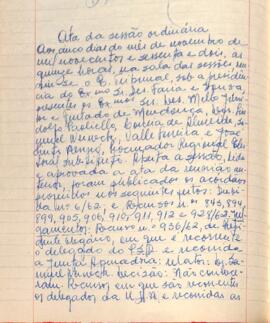 Ata da sessão ordinária
Aos cinco dias do mês de novembro de
mil novecentos e sessenta e dois, às
quinze horas, na sala das sessões, reu-
niu-se o E. Tribunal, sob a presidên-
cia do Exmo Sr. Des. Faria e Sousa,
presentes os Exmos Srs. Des. Mello Júni-
or e Furtado de Mendonça, drs.
Paolielle, Cunha de Almeida,
Valle Ferreira e José
Procurador Regional Elei-
toral Substituto. Aberta a sessão, lida
e aprovada a ata da reunião an-
terior, foram publicados os acórdãos
proferidos nos seguintes feitos:
nº 6/62; e Recursos nºs 893, 894,
899, 905, 906, 910, 911, 912 e 928/62. Jul-
gamentos: Recurso nº 936/62, de
em que é recorrente
o delegado do PSD e recorrida
a Junta Apuradora; relator: dr.
decisão: Não conhece-
ram. Recurso em que são recorrentes
os delegados da UDN e recorridas as